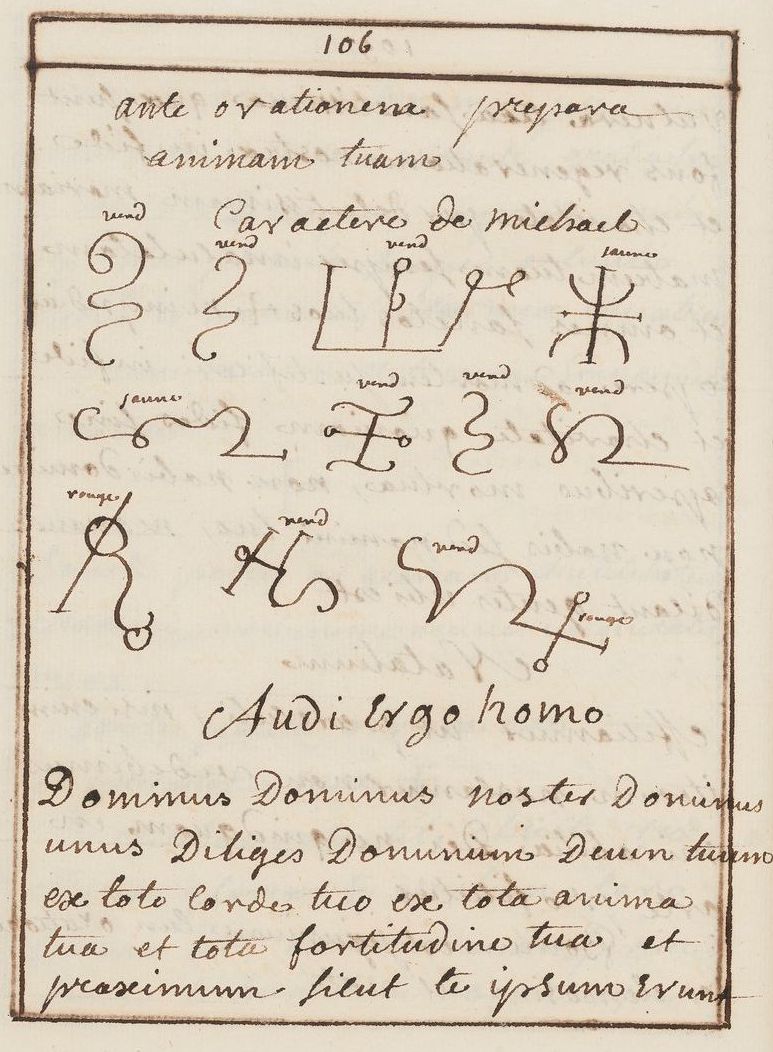 106
ante orationem prepara
animam tuam
Caractere de michael
verd
verd
verd
jaune
jaune
verd
verd
verd
rouge
verd
verd
rouge
Audi Ergo homo
Dominus Dominus noster Dominus
unus Diliges Dominum Deum tuum
ex toto Corde tuo ex tota anima
tua et tota fortitudine tua et
proximum sicut te ipsum Erunt